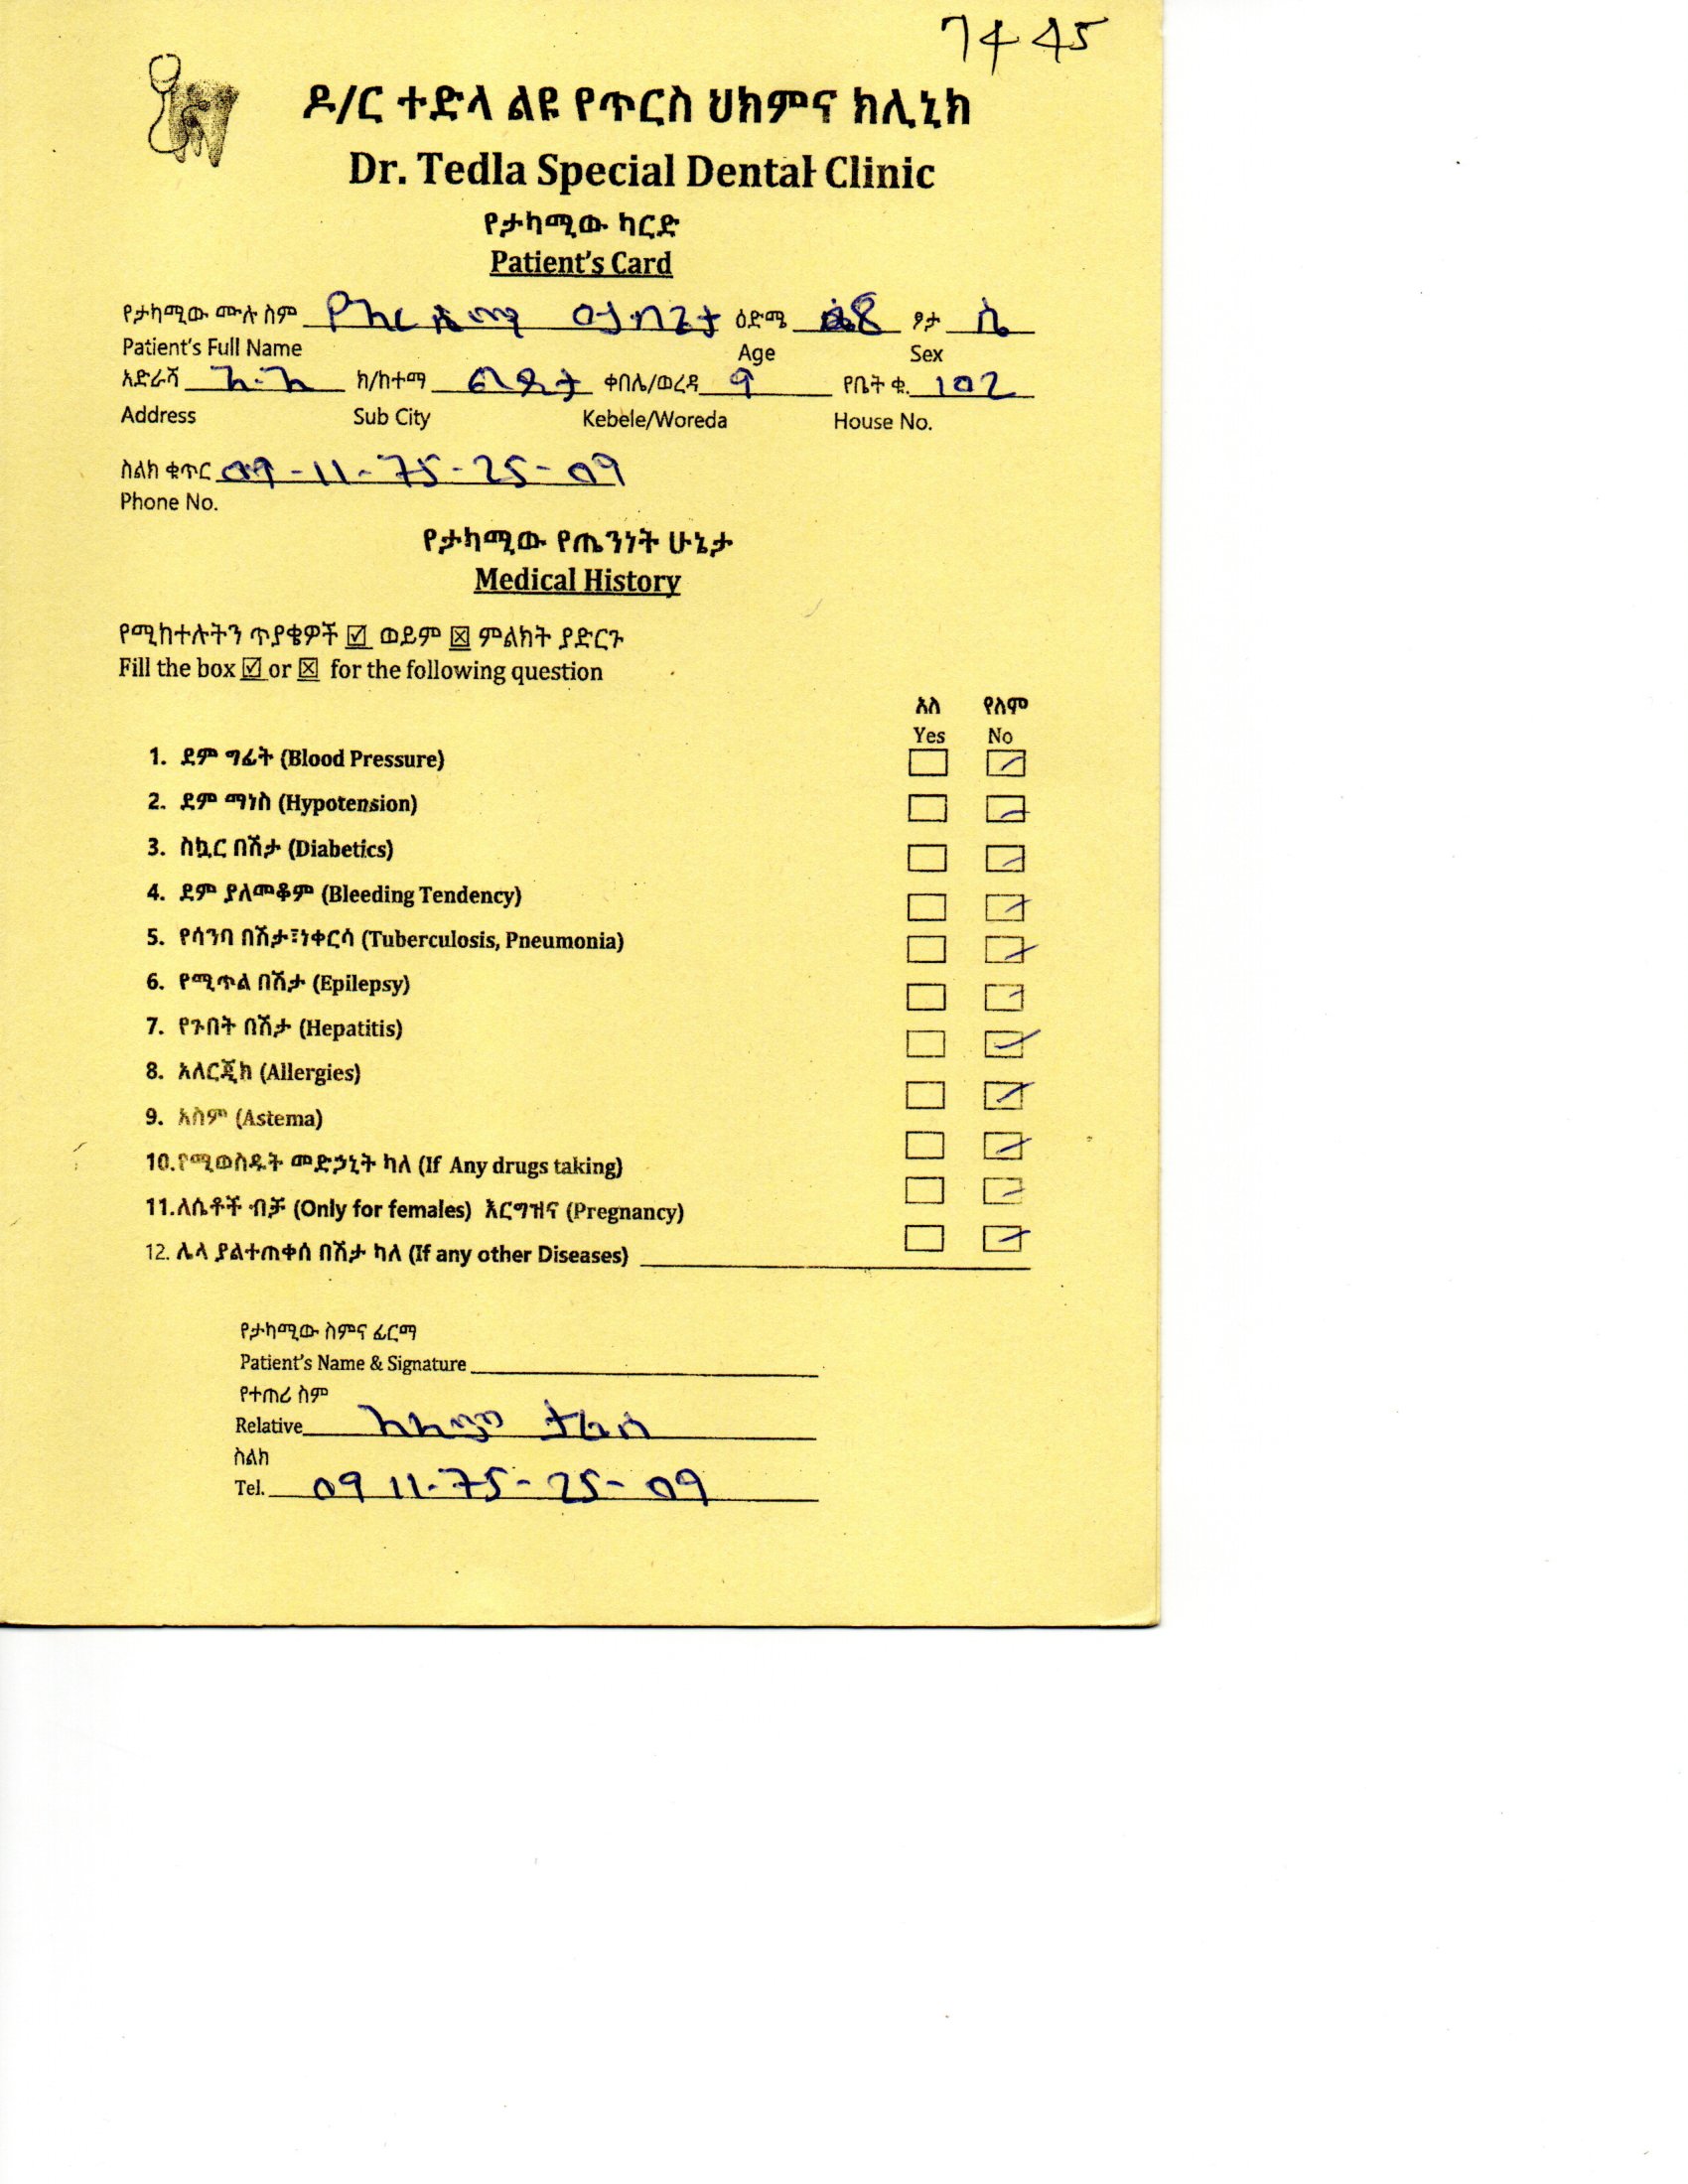 7445
ዶ/ር ተድላ ልዩ የጥርስ ህክምና ክሊኒክ
Dr. Tedla Special Dental Clinic
የታካሚው ካርድ
Patient's Card
የታካሚው ሙሉ ስም ዕድሜ ፆታ ሴ
Patient's Full Name Age Sex
አድራሻ አ.አ ክ/ከተማ ልደታ ቀበሌ/ወረዳ 9 የቤት ቁ. 102
Address Sub City Kebele/Woreda House No.
ስልክ ቁጥር 09-11-75-25-09
Phone No.
የታካሚው የጤንነት ሁኔታ
Medical History
የሚከተሉትን ጥያቄዎች ☑ ወይም ☒ ምልክት ያድርጉ
Fill the box ☑ or ☒ for the following question
አለ የለም
Yes No
1. ደም ግፊት (Blood Pressure)
2. ደም ማነስ (Hypotension)
3. ስኳር በሽታ (Diabetics)
4. ደም ያለመቆም (Bleeding Tendency)
5. የሳንባ በሽታ፣ነቀርሳ (Tuberculosis, Pneumonia)
6. የሚጥል በሽታ (Epilepsy)
7. የጉበት በሽታ (Hepatitis)
8. አለርጂክ (Allergies)
9. አስም (Astema)
10.የሚወስዱት መድኃኒት ካለ (If Any drugs taking)
11.ለሴቶች ብቻ (Only for females) እርግዝና (Pregnancy)
12. ሌላ ያልተጠቀሰ በሽታ ካለ (If any other Diseases)
የታካሚው ስምና ፊርማ
Patient's Name & Signature
የተጠሪ ስም
Relative
ስልክ
Tel. 09 11-75-25-09